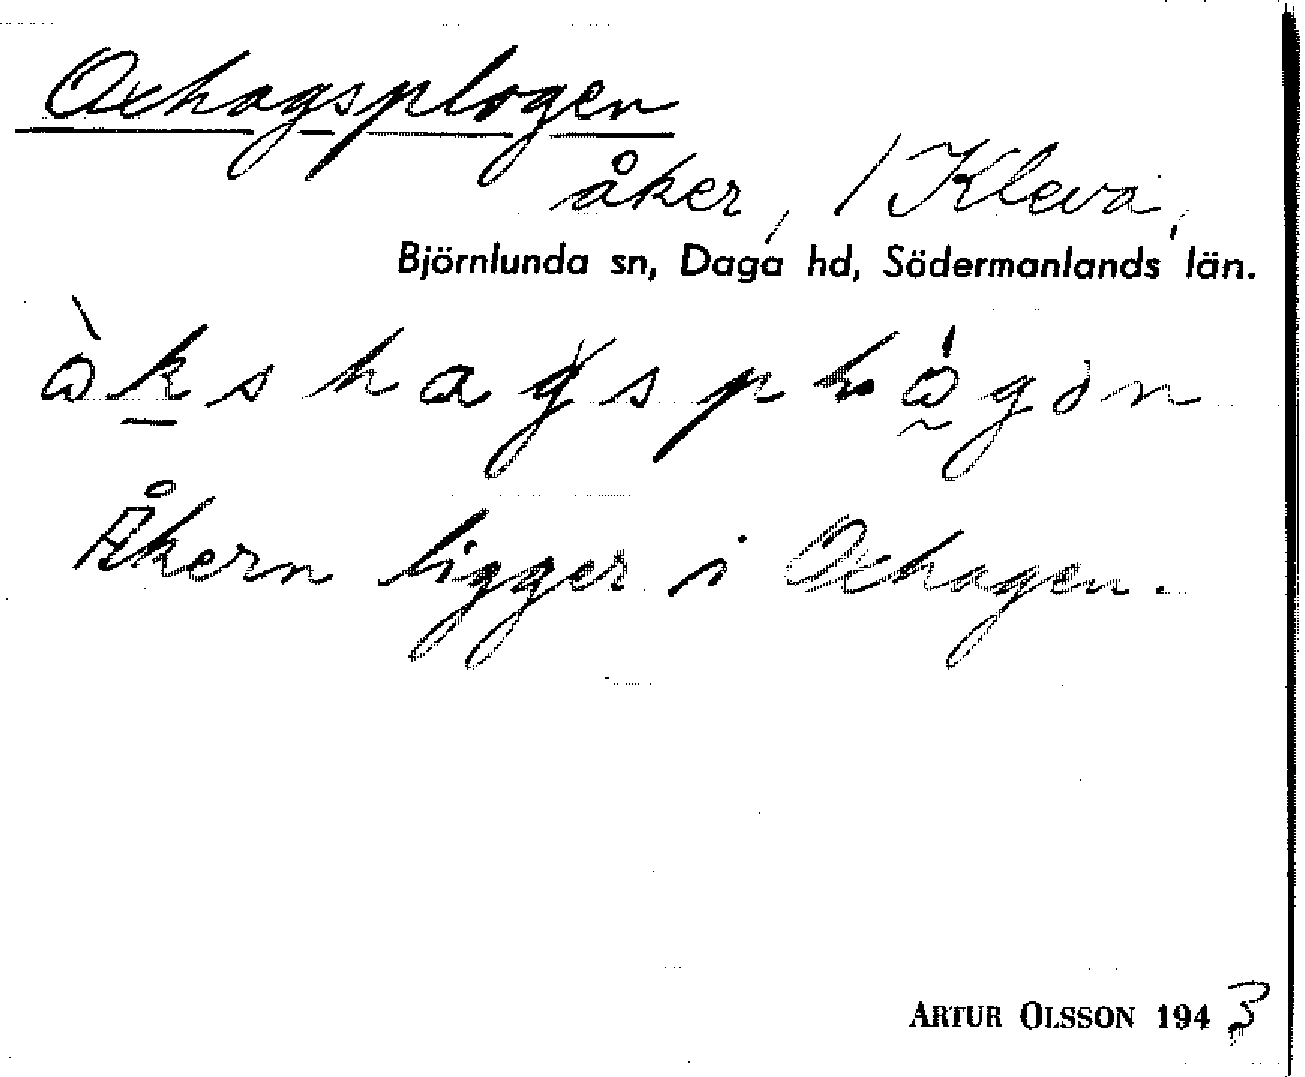 Oxhagsplogen
åker, / Kleva,
Björnlunda sn, Daga hd, Södermanlands län.
Åkern ligger i Oxhagen.
ARTUR OLSSON 1943